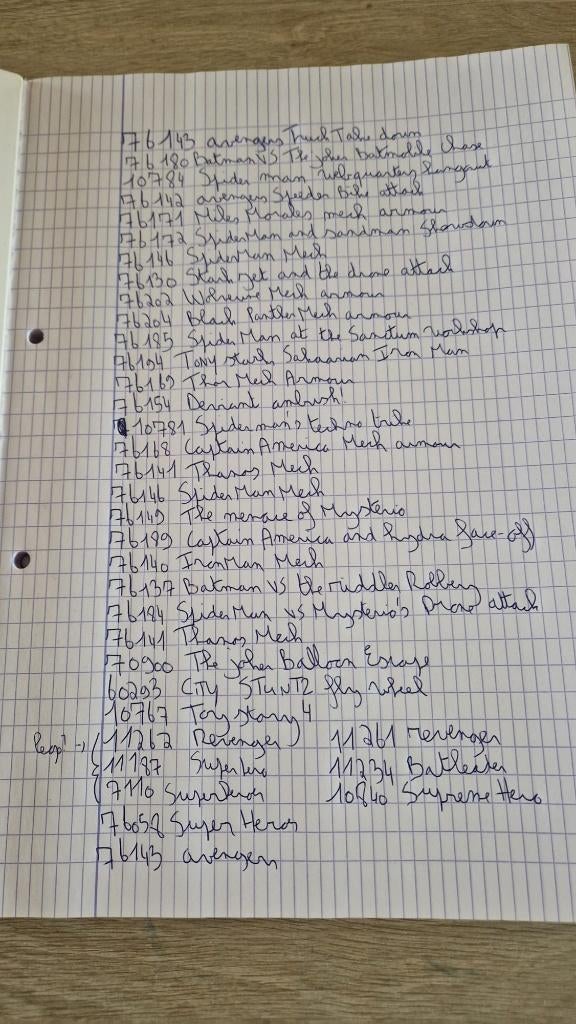 76143 avengers Truck Take down
76180 Batman VS The joker Batmobile Chase
10784 Spider man webquarters hangout
76142 avengers Speeder Bike attack
76171 Miles Morales mech armour
76172 SpiderMan and sandman Showdown
76146 SpiderMan Mech
76130 Stark jet and the drone attack
76202 Wolverine Mech armour
76204 Black Panther Mech armour
76185 SpiderMan at the Sanctum workshop
76194 Tony starks Sakaarian Iron Man
76169 Thor Mech Armour
76154 Deviant ambush!
10781 Spiderman's techno trike
76168 Captain America Mech armour
76141 Thanos Mech
76146 SpiderMan Mech
76149 The menace of Mysterio
76189 Captain America and hydra face-off
76140 IronMan Mech
76137 Batman VS the riddler Robbery
76184 SpiderMan vs Mysterio's Drone attack
76141 Thanos Mech
70900 The joker Balloon Escape
60293 CITY STUNTZ fly wheel
10767 Toy story 4
11262 Revenger 11261 revenger
11187 Superhero 11234 Batleader
7110 SuperHeros 10840 Supreme Hero
76058 Super Heros
76143 avengers